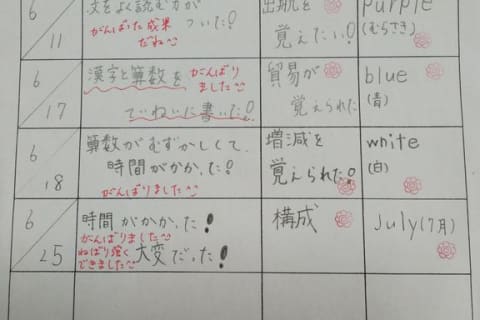 6
11
文をよく読む力が
ついた!
がんばった成果
だね
出帆を
覚えたい!
purple
(むらさき)
6
17
漢字と算数を
がんばり
ました
ていねいに書いた!
貿易が
覚えられた
blue
(青)
6
18
算数がむずかしくて、
時間がかかった!
がんばりました
増減を
覚えられた!
white
(白)
6
25
時間がかかった!
がんばりました
ねばり強く
できました
大変だった!
構成
July(7月)